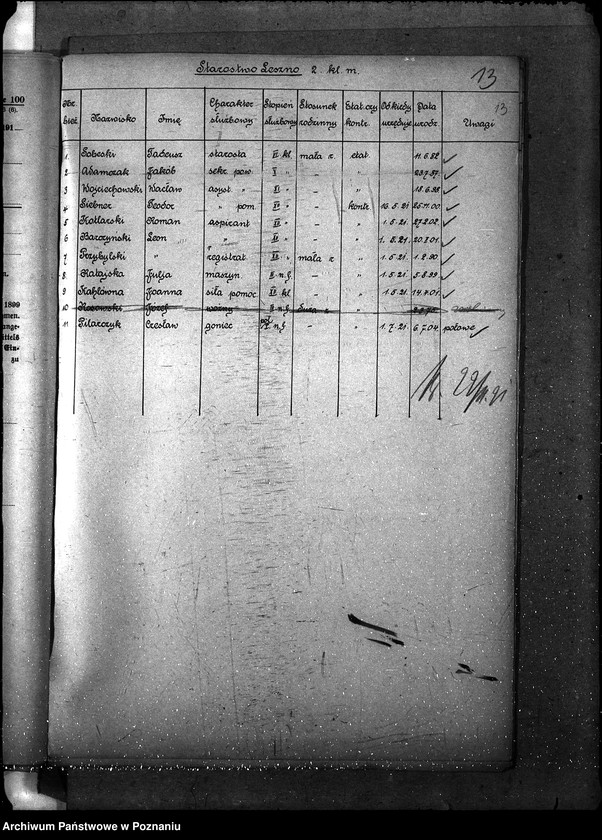 Starostwo Leszno 2. kl. m.
13
13
Nr. bież. Nazwisko Imię Charakter służbowy Stopień służbowy Stosunek rodzinny Etat. czy kontr. Od kiedy urzęduje Data urodz. Uwagi
1 Sobeski Tadeusz starosta VI kl. mała r. etat. 11.6.82
2 Adamczak Jakób sekr. pow. X " – "
3 Wojciechowski Wacław asyst. " – " 18.6.98
4 Siebner Teodor " pom. – kontr. 16.5.21 25.11.00
5 Kotlarski Roman aspirant – " 1.5.21. 27.2.02
6 Barczyński Leon " – " 1.5.21. 20.2.01
7 Przybylski " registrat. mała r. " 1.5.21 1.2.90
8 Ratajska Julja maszyn. – " 1.5.21. 5.8.99
9 Kahlówna Joanna siła pomoc. kl. – " 1.5.21 14.7.01
10 Józef woźny
11 Pilarczyk Czesław goniec – " 1.7.21. 6.7.04 połowę
00
(6).
191
1899
men.
ange-
ittels
Ein-
zu
Archiwum Państwowe w Poznaniu